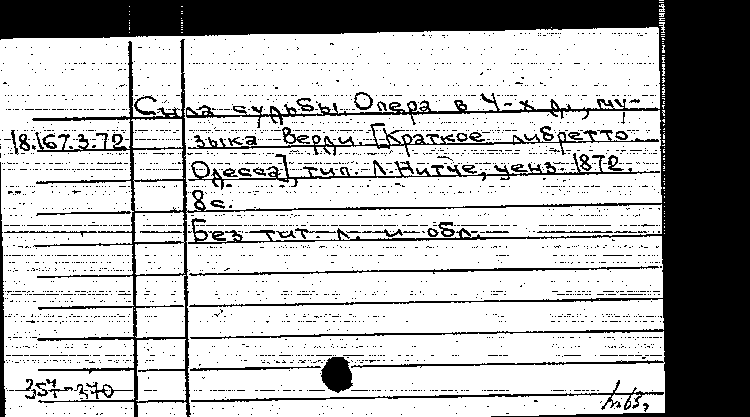 Сила судьбы. Опера в 4-х д., му-
18.167.3.72 зыка Верди. [Краткое либретто.
Одесса], тип. Л. Нитче, ценз. 1872.
8 с.
Без тит. л. и обл.
357-370